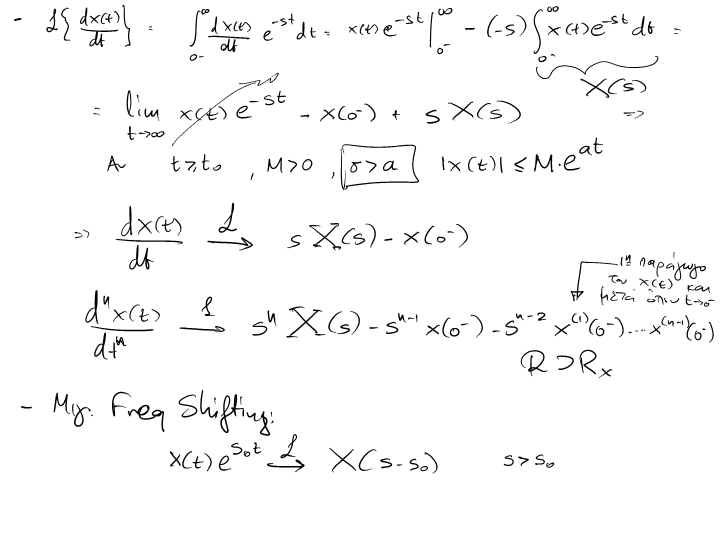 - L{dx(t)/dt} = ∫_{0-}^{∞} dx(t)/dt e^{-st} dt = x(t) e^{-st} |_{0-}^{∞} - (-s) ∫_{0-}^{∞} x(t) e^{-st} dt =
X(s)
= lim_{t→∞} x(t) e^{-st} - x(0-) + s X(s) =>
Αν t ≥ t₀, M > 0, σ > a |x(t)| ≤ M·e^{at}
=> dx(t)/dt L→ s X(s) - x(0-)
1η παράγωγο
του x(t) και
μετά όπου t→0-
d^n x(t)/dt^n L→ s^n X(s) - s^{n-1} x(0-) - s^{n-2} x^{(1)}(0-) ... x^{(n-1)}(0-)
R ⊃ R_x
- Μιγ. Freq Shifting:
x(t) e^{s₀t} L→ X(s-s₀) s > s₀